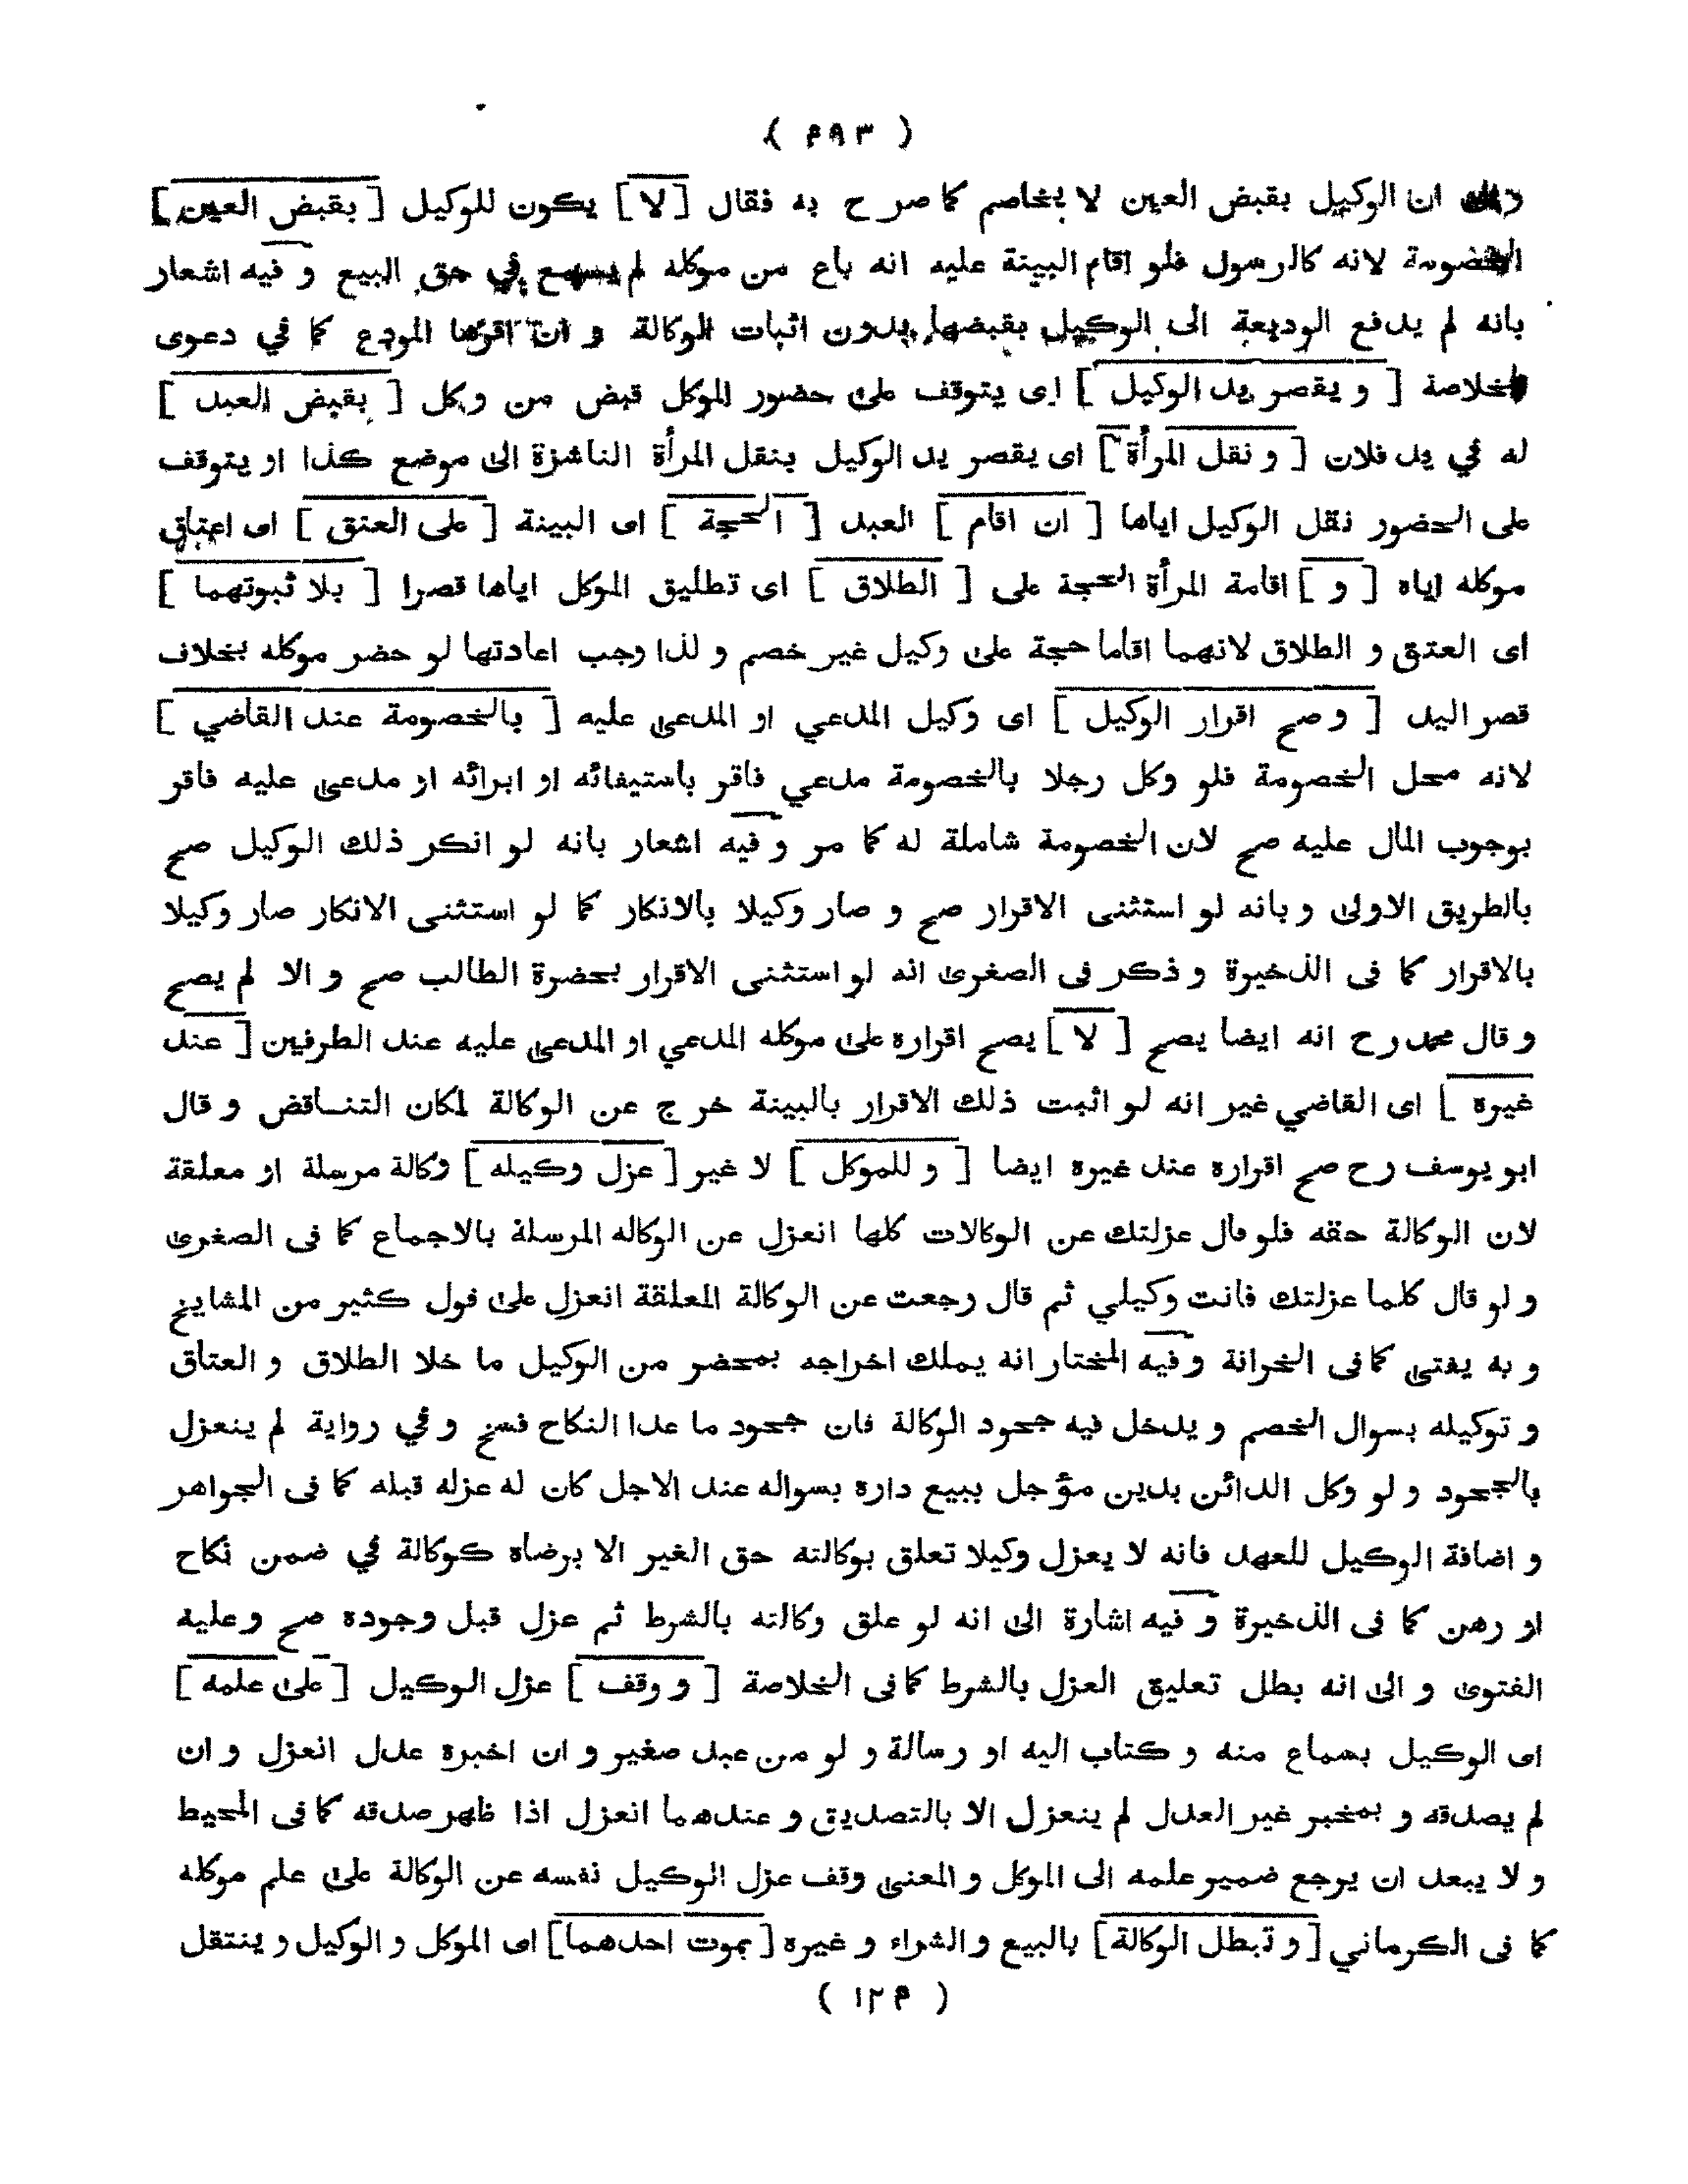 ( ۴۹۳ )
ان الوكيل بقبض العين لا يخاصم كما صرح به فقال [ لا ] يكون للوكيل [ بقبض العين ]
الخصومة لانه كالرسول فلو اقام البينة عليه انه باع من موكله لم يسمع في حق البيع و فيه اشعار
بانه لم يدفع الوديعة الى الوكيل بقبضها بدون اثبات الوكالة و ان اقربها المودع كما في دعوى
الخلاصة [ و يقصر يد الوكيل ] اى يتوقف على حضور الموكل قبض من وكل [ بقبض العبد ]
له في يد فلان [ و نقل المرأة ] اى يقصر يد الوكيل بنقل المرأة الناشزة الى موضع كذا او يتوقف
على الحضور نقل الوكيل اياها [ ان اقام ] العبد [ الحجة ] اى البينة [ على العتق ] اى اعتاق
موكله اياه [ و ] اقامة المرأة الحجة على [ الطلاق ] اى تطليق الموكل اياها قصرا [ بلا ثبوتهما ]
اى العتق و الطلاق لانهما اقاما حجة على وكيل غير خصم و لذا وجب اعادتها لو حضر موكله بخلاف
قصر اليد [ و صح اقرار الوكيل ] اى وكيل المدعي او المدعى عليه [ بالخصومة عند القاضي ]
لانه محل الخصومة فلو وكل رجلا بالخصومة مدعي فاقر باستيفائه او ابرائه او مدعى عليه فاقر
بوجوب المال عليه صح لان الخصومة شاملة له كما مر و فيه اشعار بانه لو انكر ذلك الوكيل صح
بالطريق الاولى و بانه لو استثنى الاقرار صح و صار وكيلا بالانكار كما لو استثنى الانكار صار وكيلا
بالاقرار كما فى الذخيرة و ذكر فى الصغرى انه لو استثنى الاقرار بحضرة الطالب صح و الا لم يصح
و قال محمد رح انه ايضا يصح [ لا ] يصح اقراره على موكله المدعي او المدعى عليه عند الطرفين [ عند
غيره ] اى القاضي غير انه لو اثبت ذلك الاقرار بالبينة خرج عن الوكالة لمكان التناقض و قال
ابو يوسف رح صح اقراره عند غيره ايضا [ و للموكل ] لا غير [ عزل وكيله ] وكالة مرسلة او معلقة
لان الوكالة حقه فلو قال عزلتك عن الوكالات كلها انعزل عن الوكاله المرسلة بالاجماع كما فى الصغرى
و لو قال كلما عزلتك فانت وكيلي ثم قال رجعت عن الوكالة المعلقة انعزل على قول كثير من المشايخ
و به يفتى كما فى الخزانة و فيه المختار انه يملك اخراجه بمحضر من الوكيل ما خلا الطلاق و العتاق
و توكيله بسوال الخصم و يدخل فيه جحود الوكالة فان جحود ما عدا النكاح فسخ و في رواية لم ينعزل
بالجحود و لو وكل الدائن بدين مؤجل ببيع داره بسواله عند الاجل كان له عزله قبله كما فى الجواهر
و اضافة الوكيل للعهد فانه لا يعزل وكيلا تعلق بوكالته حق الغير الا برضاه كوكالة في ضمن نكاح
او رهن كما فى الذخيرة و فيه اشارة الى انه لو علق وكالته بالشرط ثم عزل قبل وجوده صح و عليه
الفتوى و الى انه بطل تعليق العزل بالشرط كما فى الخلاصة [ و وقف ] عزل الوكيل [ على علمه ]
اى الوكيل بسماع منه و كتاب اليه او رسالة و لو من عبد صغير و ان اخبره عدل انعزل و ان
لم يصدقه و بمخبر غير العدل لم ينعزل الا بالتصديق و عندهما انعزل اذا ظهر صدقه كما فى المحيط
و لا يبعد ان يرجع ضمير علمه الى الموكل و المعنى وقف عزل الوكيل نفسه عن الوكالة على علم موكله
كما فى الكرماني [ و تبطل الوكالة ] بالبيع و الشراء و غيره [ بموت احدهما ] اى الموكل و الوكيل و ينتقل
( ۱۲۴ )